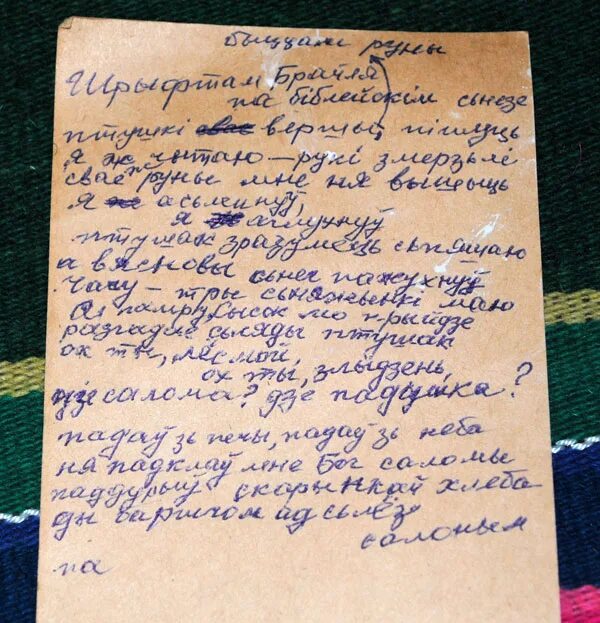 быццам руны
Шрыфтам Брайля
па біблейскім сьнезе
птушкі свае вершы пішуць
я чытаю — рукі змерзьлі
свае руны мне ня вышыць
я асьлепнуў,
я аглухнуў
птушак зразумець сьпяшаю
а вясновы сьнег пажухнуў
Чаму — тры сьняжынкі маю
разгадаю сьляды птушак
ох ты, лёс мой,
ох ты, злыдзень,
дзе салома? дзе падушка?
падаў зь печы, падаў зь неба
ня падклаў мне Бог саломы
паддурыў скарынкай хлеба
ды баршчом ад сьлёз
салоным
па